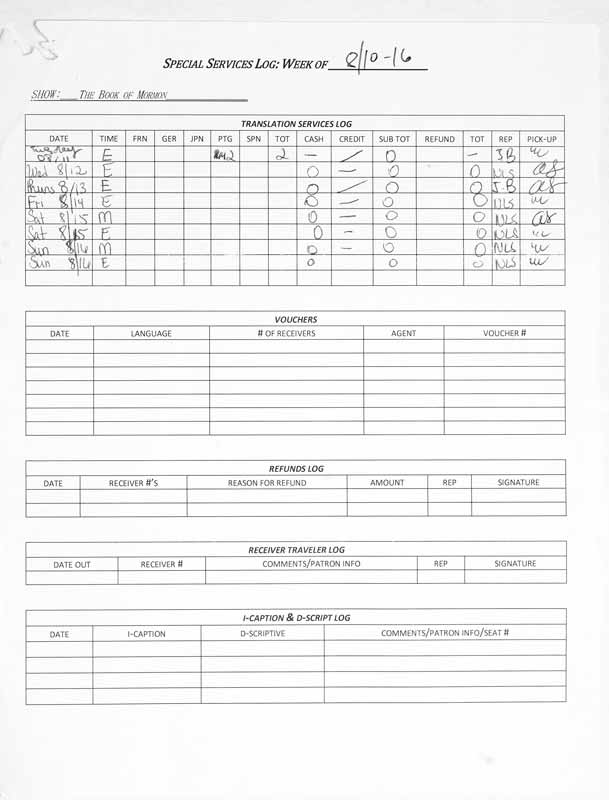 SPECIAL SERVICES LOG: WEEK OF 8/10-16
SHOW: THE BOOK OF MORMON
TRANSLATION SERVICES LOG
DATE TIME FRN GER JPN PTG SPN TOT CASH CREDIT SUB TOT REFUND TOT REP PICK-UP
Tuesday 08/11 E 2 — / O — JB
Wed 8/12 E O — O O NLS
Thurs 8/13 E O / O O J.B
Fri 8/14 E O — O O NLS
Sat 8/15 M O — O O NLS
Sat 8/15 E O - O O NLS
Sun 8/16 M O - O O NLS
Sun 8/16 E O O O NLS
VOUCHERS
DATE LANGUAGE # OF RECEIVERS AGENT VOUCHER #
REFUNDS LOG
DATE RECEIVER #'S REASON FOR REFUND AMOUNT REP SIGNATURE
RECEIVER TRAVELER LOG
DATE OUT RECEIVER # COMMENTS/PATRON INFO REP SIGNATURE
I-CAPTION & D-SCRIPT LOG
DATE I-CAPTION D-SCRIPTIVE COMMENTS/PATRON INFO/SEAT #